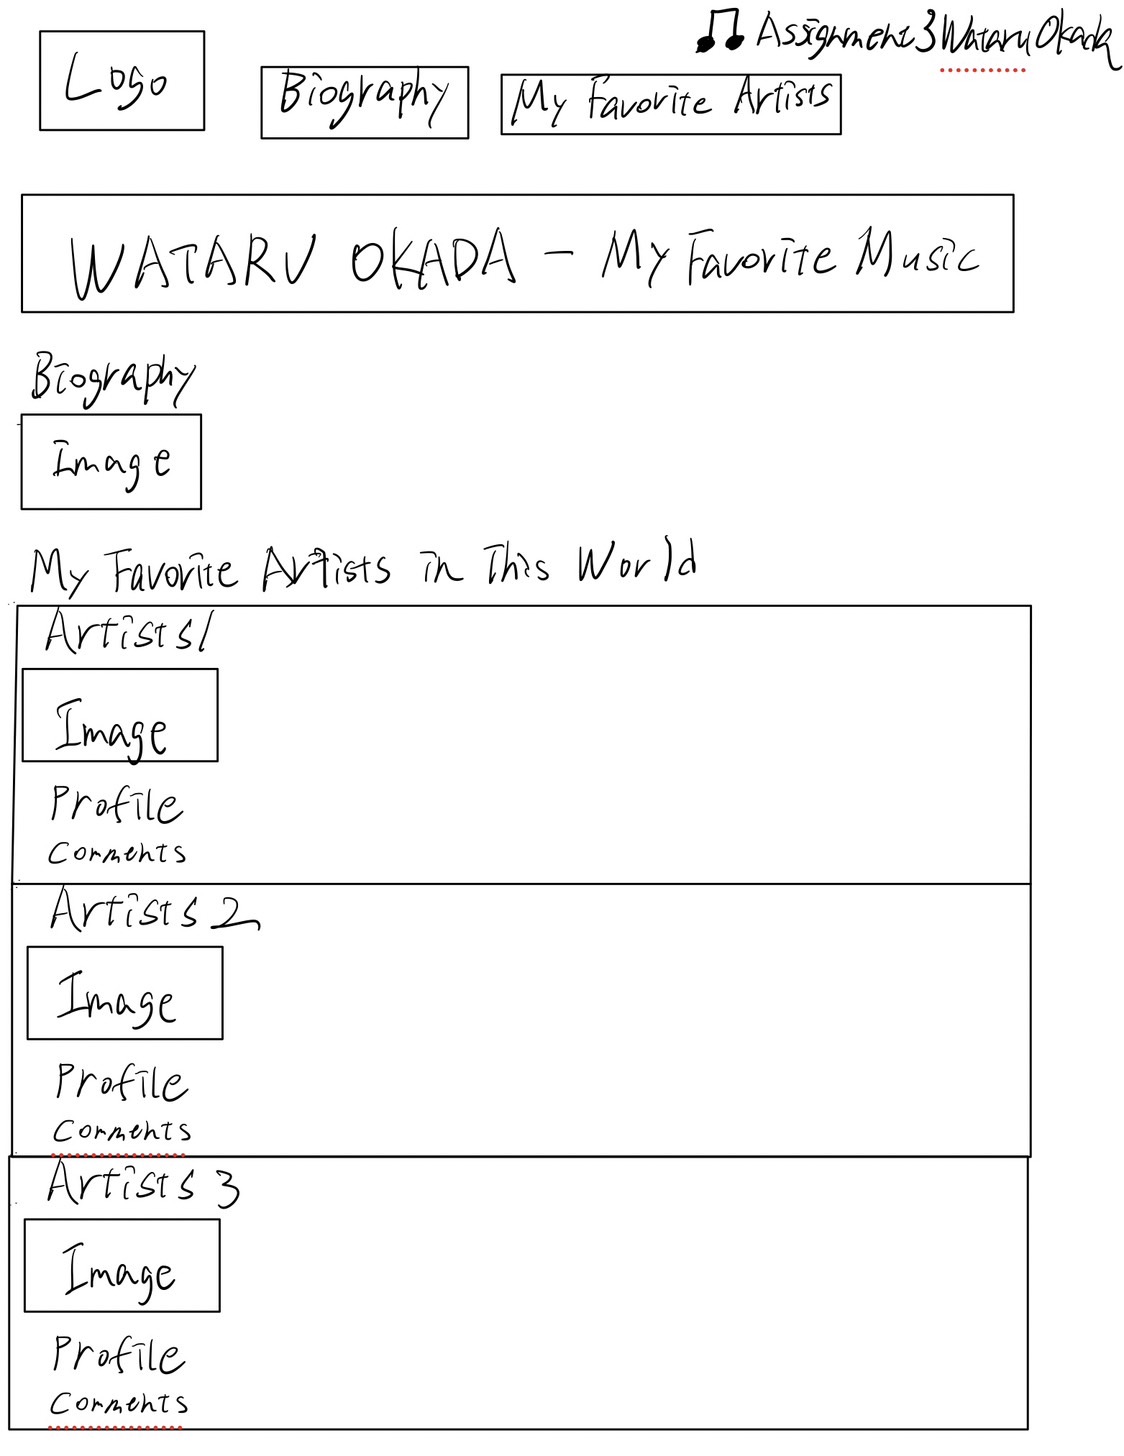 ♫ Assignment3 Wataru Okada
Logo
Biography
My Favorite Artists
WATARU OKADA - My Favorite Music
Biography
Image
My Favorite Artists in This World
Artists1
Image
Profile
Comments
Artists 2
Image
Profile
Comments
Artists 3
Image
Profile
Comments